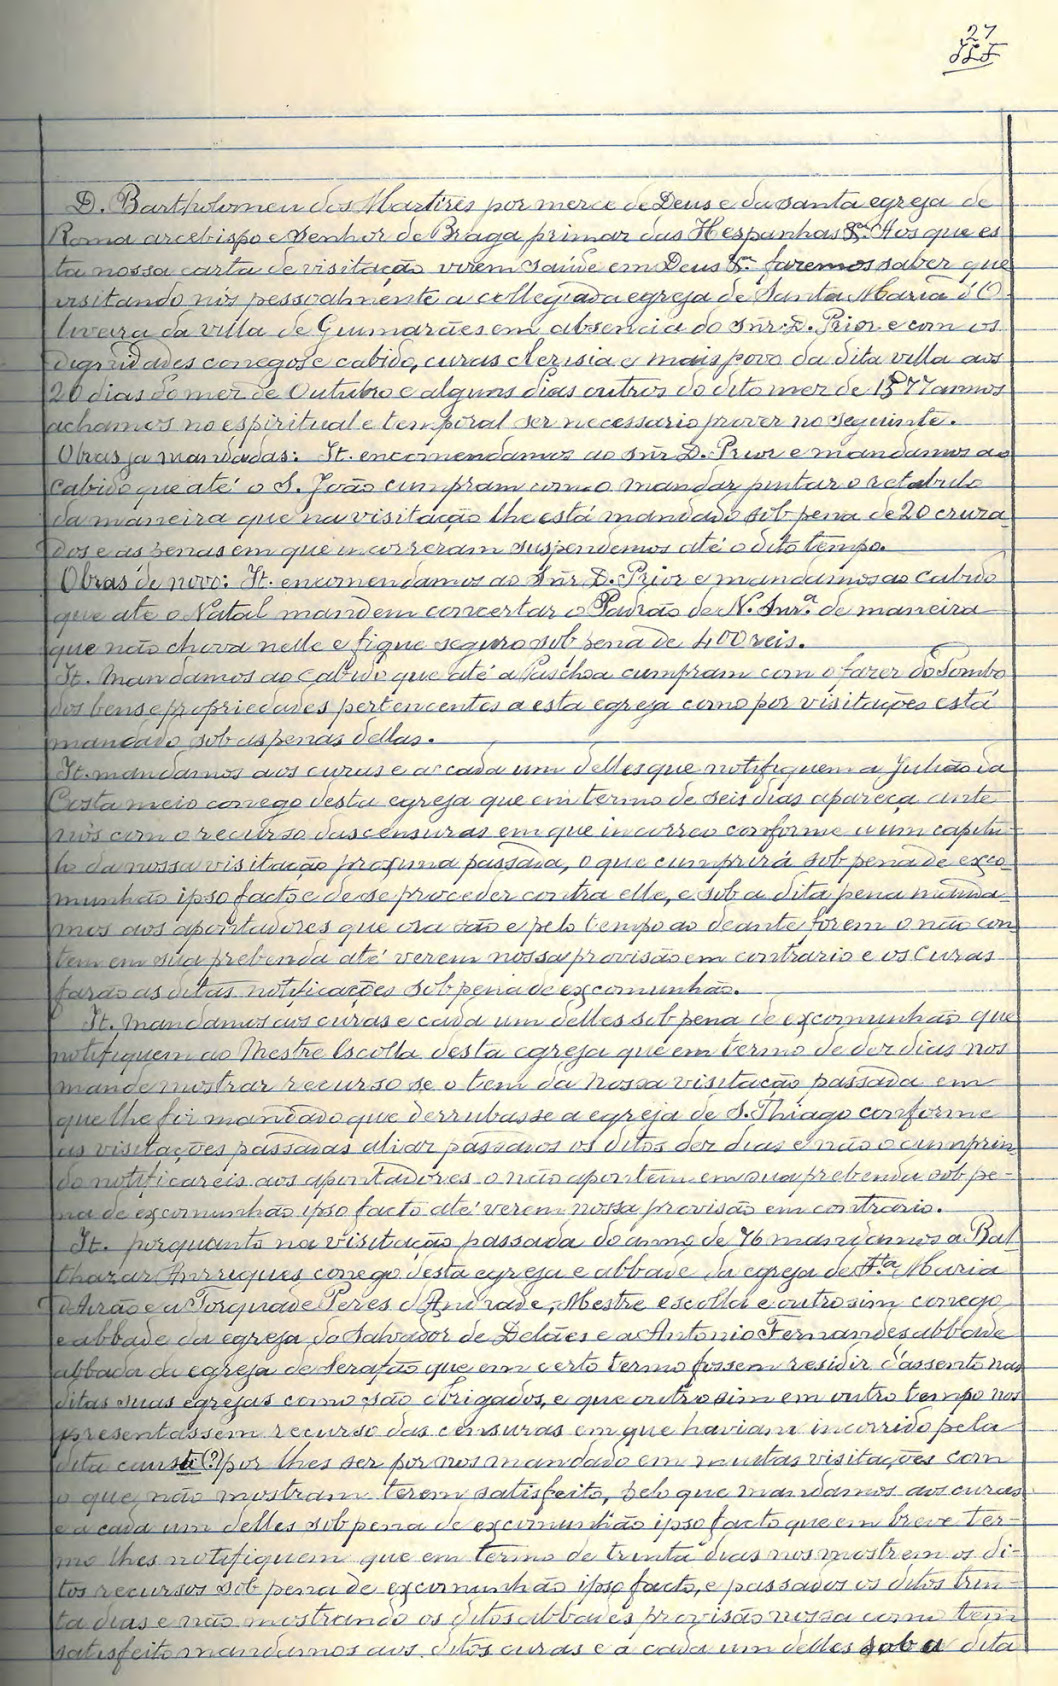 27
D. Bartholomeu dos Martires por merce de Deus e da santa egreja de
Roma arcebispo e Senhor de Braga primaz das Hespanhas &ª Aos que es
ta nossa carta de visitação virem saúde em Deus &ª fazemos saber que
visitando nós pessoalmente a collegiada egreja de Santa Maria d'O
liveira da villa de Guimarães em absencia do Snr. D. Prior e com os
dignidades conegos e cabido, curas clerisia e mais povo da dita villa aos
20 dias do mez de Outubro e alguns dias outros do dito mez de 1577 annos
achamos no espiritual e temporal ser necessario prover no seguinte.
Obras ja mandadas: It. encomendamos ao Snr D. Prior e mandamos ao
Cabido que até o S. João cumpram com o mandar pintar o retabulo
da maneira que na visitação lhe está mandado sob pena de 20 cruza
dos e as penas em que incorreram suspendemos até o dito tempo.
Obras de novo: It. encomendamos ao Snr D. Prior e mandamos ao Cabido
que até o Natal mandem concertar o Padrão de N. Snr.ª de maneira
que não chova nelle e fique seguro sob pena de 400 reis.
It. Mandamos ao Cabido que até a Paschoa cumpram com o fazer do Tombo
dos bens e propriedades pertencentes a esta egreja como por visitações está
mandado sob as penas dellas.
It. mandamos aos curas e a cada um delles que notifiquem a Julião da
Costa meio conego desta egreja que em termo de seis dias apareça ante
nós com o recurso das censuras em que incorreo conforme a um capitu-
lo da nossa visitação proxima passada, o que cumprirá sob pena de exco-
munhão ipso facto e de se proceder contra elle, e sob a dita pena manda-
mos aos apontadores que ora são e pelo tempo ao deante forem o não con
tem em sua prebenda até verem nossa provisão em contrario e os Curas
farão as ditas notificações sob pena de excomunhão.
It. Mandamos aos curas e cada um delles sob pena de excomunhão que
notifiquem ao Mestre Escolla desta egreja que em termo de dez dias nos
mande mostrar recurso se o tem da nossa visitação passada em
que lhe foi mandado que derrubasse a egreja de S. Thiago conforme
as visitações passadas aliaz passados os ditos dez dias e não o cumprin-
do notificareis aos apontadores o não apontem em sua prebenda sob pe-
na de excomunhão ipso facto até verem nossa provisão em contrario.
It. porquanto na visitação passada do anno de 76 mandamos a Bal-
thazar Anrriques conego desta egreja e abbade da egreja de St.ª Maria
d'Airão e a Torquade Peres d'Andrade, Mestre escolla e outrosim conego
e abbade da egreja do Salvador de Delães e a Antonio Fernandes abbade
abbada da egreja de Serafão que em certo termo fossem residir d'assento nas
ditas suas egrejas como são obrigados, e que outrosim em outro tempo nos
presentassem recurso das censuras em que haviam incorrido pela
dita causa (?) por lhes ser por nos mandado em muitas visitações com
o que não mostram terem satisfeito, pelo que mandamos aos curas
e a cada um delles sob pena de excomunhão ipso facto que em breve ter-
mo lhes notifiquem que em termo de trinta dias nos mostrem os di-
tos recursos sob pena de excomunhão ipso facto, e passados os ditos trin-
ta dias e não mostrando os ditos abbades provisão nossa como tem
satisfeito mandamos aos ditos curas e a cada um delles sob a dita